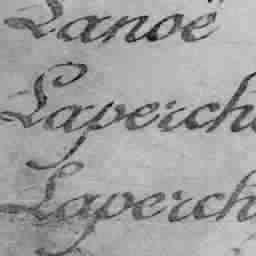 Lanoë
Laperch
Laperch